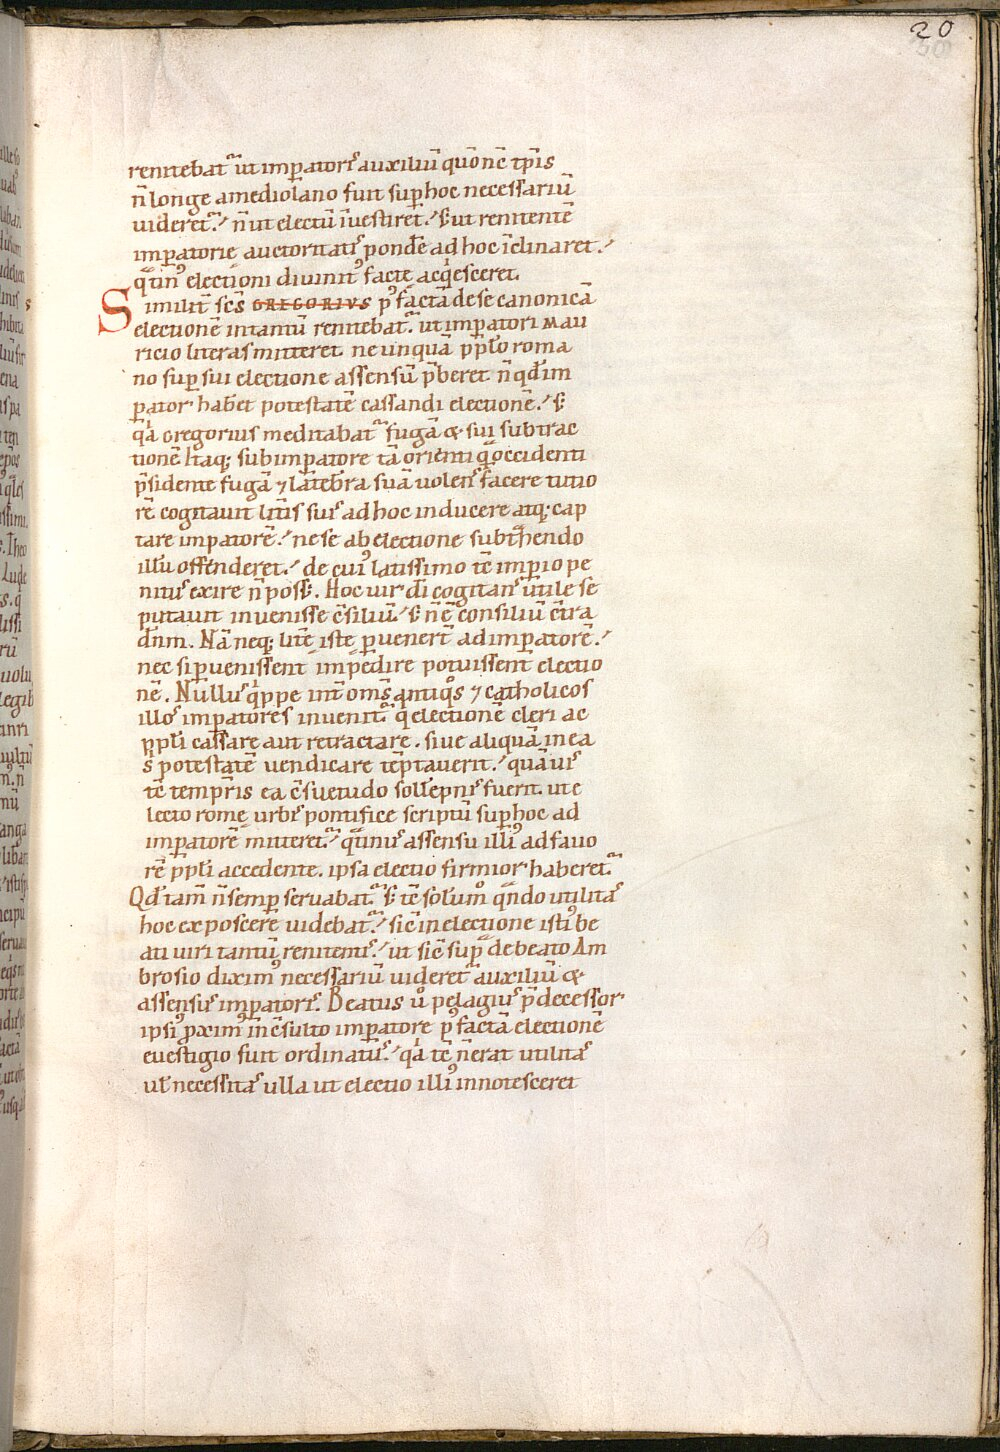 20
renitebat᷑ ut imp̄atorıſ auxiliū quōnē tp̄is
n̄ longe amediolano fuit sup̄ hoc necessariū
uideret᷑. n̄ ut electū īuestiret. s; ut renitentē
imp̄atorię auctoritatıſ ponde᷑ ad hoc īclinaret.
q̄tin᷒ electioni diuinit᷒ factę acq̇esceret.
Similit̄ sc̄s GREGORIVS p᷒ factā de se canonicā
electionē intantū renitebat᷑. ut imp̄atori Mau
ricio literaſ mitteret. ne unquā pp̄lo roma
no sup̄ sui electione assensū p̄beret n̄ qd̄ im
p̄ator hab̄et potestatē cassandi electionē. s;
q̇a Gregorius meditabat᷑ fugā & sui subtrac
tionē. Itaq; sub imp̄atore tā orienti q̄ occidenti
p̄sidente fugā ⁊ latebra suā uolenſ facere tutio
rē cogitauit lītis suiſ ad hoc inducere atq; cap
tare imp̄atorē. ne se ab electione subt̄hendo
illū offenderet. de cui᷒ latissimo tc̄ imp̄io pe
nituſ exire n̄ poss;. Hoc uir dī cogitanſ utile se
putauit inuenisse c̄siliū. s; n̄ ē consiliū c̄tra
dn̄m. Nā neq; litę iste p̄uenert̄ ad imp̄atorē.
nec si p̄uenissent impedire potuissent electio
nē. Nulluſ q̇ppe int̄ om̄s antiq̇s ⁊ catholicos
illoſ imp̄atores inuenit᷑ q̇ electionē cleri ac
pp̄li cassare aut retractare. siue aliquā in ea
s̄ potestatē uendicare tēptauerit. quāuiſ
tc̄ temp̄ris ea c̄suetudo sollēpniſ fuerit. ut e
lecto romę urbıſ pontifice scriptū sup̄ hoc ad
imp̄atorē mitteret᷑. q̄tinuſ assensu illi᷒ ad fauo
rē pp̄li accedente. ipsa electio firmior haberet᷑.
Qd̄ tam̄ n̄ semp̄ seruabat᷑. s; tc̄ solum̊ qn̄do utilitaſ
hoc exposcere uidebat᷑. sic̄ in electione isti᷒ be
ati uiri tantū renitentıſ. ut sic̄ sup᷑ de beato Am
brosio dixim᷒ necessariū uideret᷑ auxiliū &
assensuſ imp̄atorıſ. Beatus ů pelagiuſ p̄decessor
ipsi᷒ pxim᷒ inc̄sulto imp̄atore p᷒ factā electionē
euestigio fuit ordinatuſ. q̇a tc̄ n̄ erat utilitaſ
ul̄ necessitaſ ulla ut electio illi᷒ innotesceret